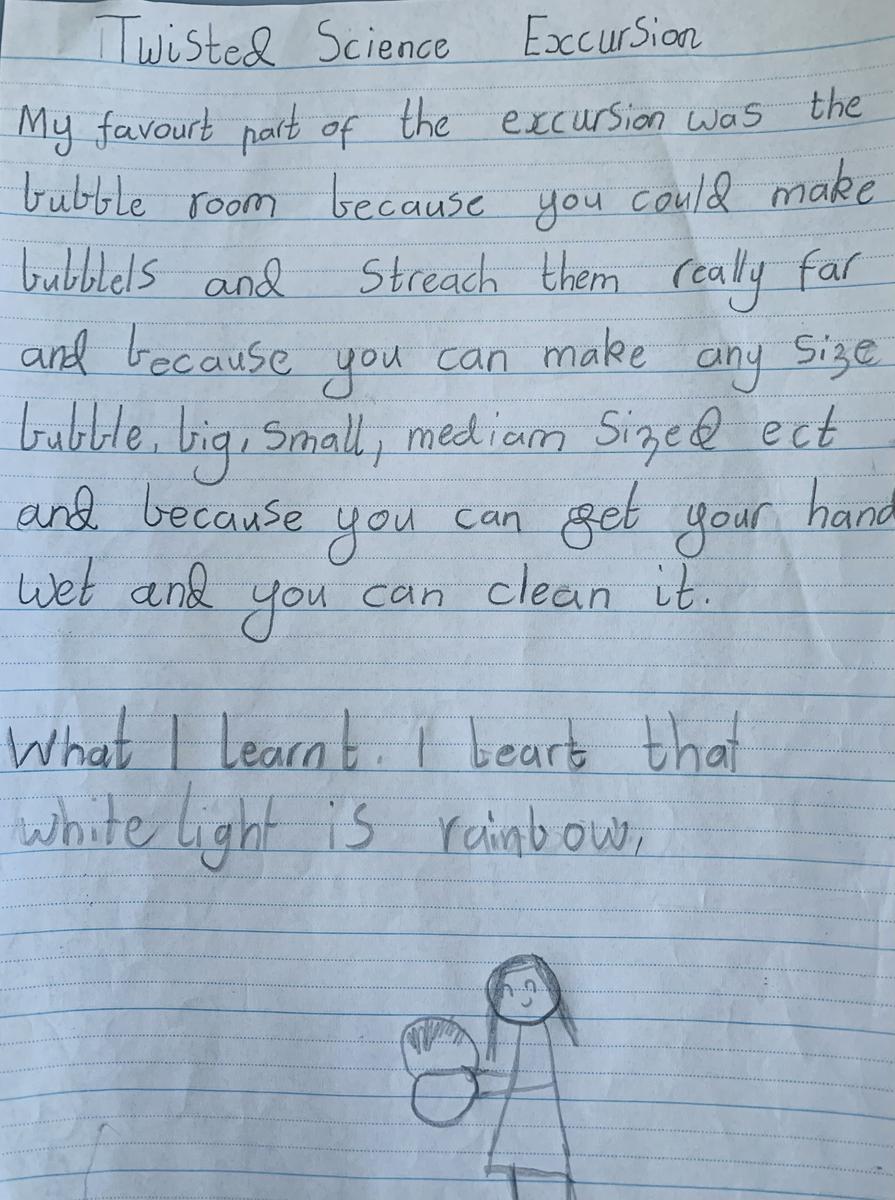 Twisted Science Exccursion
My favourt part of the excursion was the
bubble room because you could make
bubblels and Streach them really far
and because you can make any size
bubble, big, small, mediam sized ect
and because you can get your hand
wet and you can clean it.
What I learnt. I leart that
white light is rainbow,